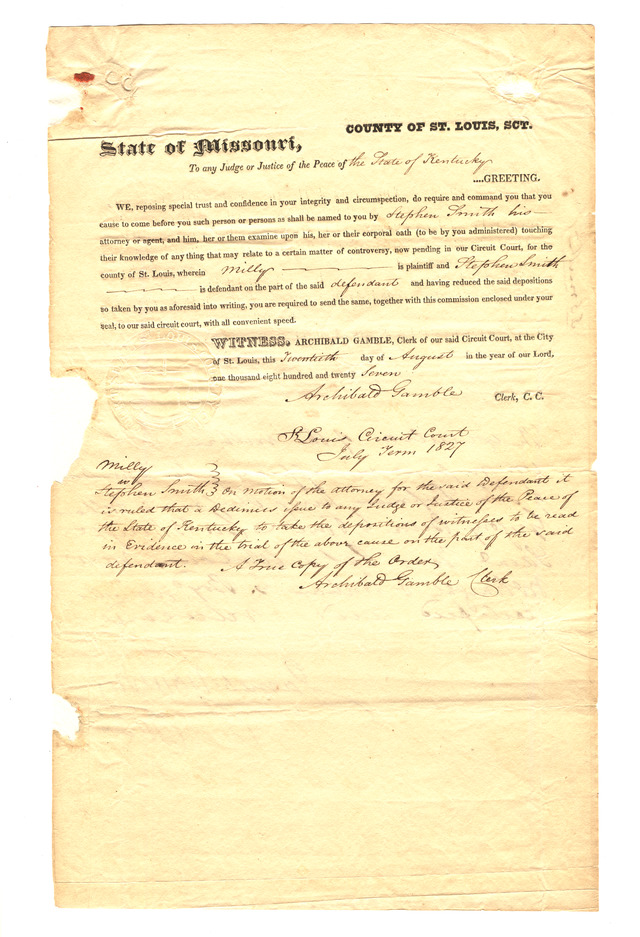 COUNTY OF ST. LOUIS, SCT.
State of Missouri,
To any Judge or Justice of the Peace of the State of Kentucky
....GREETING.
WE, reposing special trust and confidence in your integrity and circumspection, do require and command you that you
cause to come before you such person or persons as shall be named to you by Stephen Smith his
attorney or agent, and him, her or them examine upon his, her or their corporal oath (to be by you administered) touching
their knowledge of any thing that may relate to a certain matter of controversy, now pending in our Circuit Court, for the
county of St. Louis, wherein Milly is plaintiff and Stephen Smith
is defendant on the part of the said defendant and having reduced the said depositions
so taken by you as aforesaid into writing, you are required to send the same, together with this commission enclosed under your
seal, to our said circuit court, with all convenient speed.
WITNESS, ARCHIBALD GAMBLE, Clerk of our said Circuit Court, at the City
of St. Louis, this Twentieth day of August in the year of our Lord,
one thousand eight hundred and twenty Seven
Archibald Gamble Clerk, C. C.
St Louis Circuit Court
July Term 1827
Milly
vs
Stephen Smith On motion of the attorney for the said Defendant it
is ruled that a Dedimus issue to any Judge or Justice of the Peace of
the State of Kentucky to take the depositions of witnesses to be read
in Evidence on the trial of the above cause on the part of the said
defendant. A True Copy of the Order
Archibald Gamble Clerk